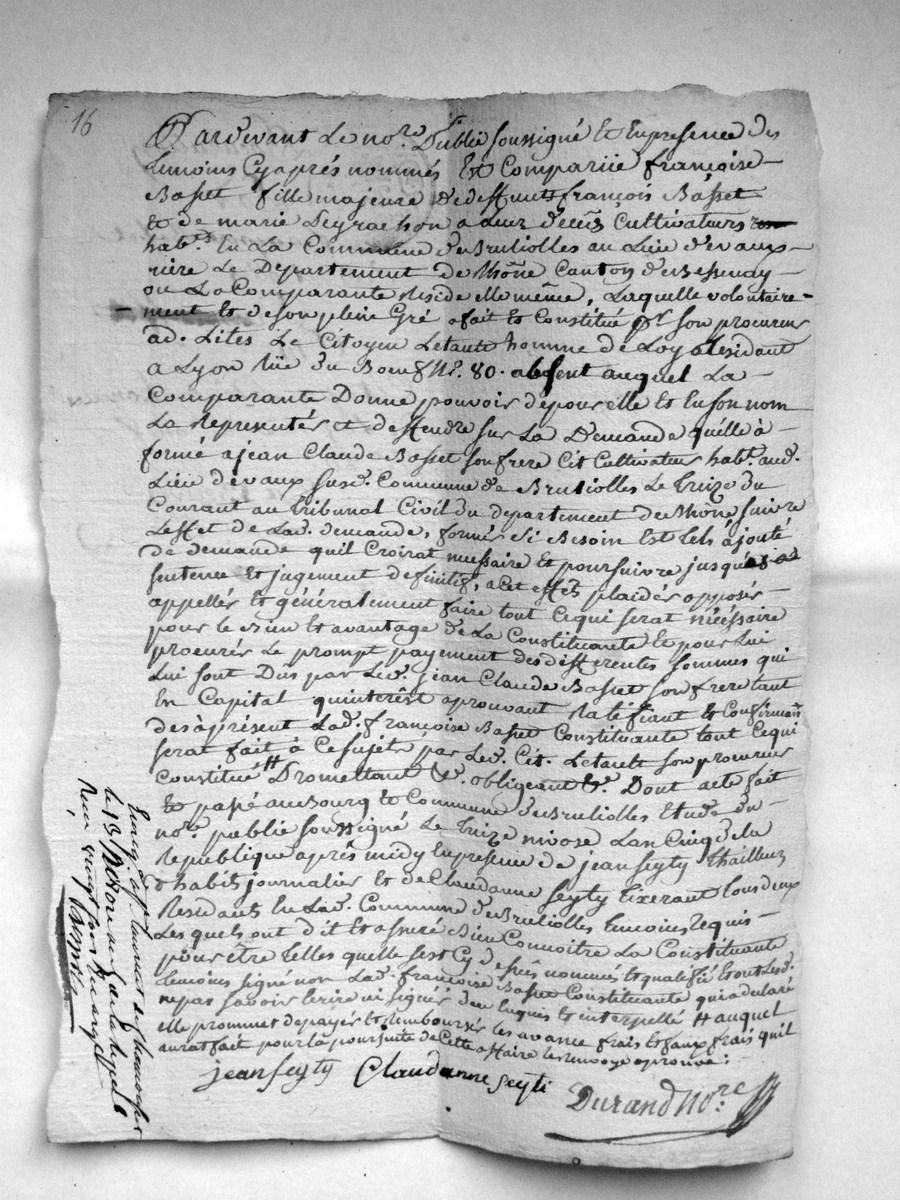 16
Pardevant Le no.re Public soussigné Et Enpresence des
temoins Cyaprés nommés Est Compariie françoise
Basset fille majeure de deffunts françois Basset
Et de marie Leyrachon a Leur décéis Cultivateurs
hab.ts En La Commune de Brulliolles au Lieu d'evaux
riére Le Departement de Rhône Canton de Bessenay
ou La Comparante Reside elle même, Laquelle volontaire-
ment Et de son plein Gré a fait Et Constitué pr son procureur
ad. Lites Le Citoyen Letault homme de Loy Résidant
a Lyon Rüe du Boeuf N.o 80. absent auquel La
Comparante Donne pouvoir de pour elle Et En son nom
La Representér et deffendre sur La Demande qu'elle à
formé a jean Claude Basset son frere Cit Cultivateur hab.t aud.
Lieu d'evaux susd. Commune de Brulliolles Le treize du
Courant au tribunal Civil du departement du Rhône, suivre
L'effet de Lad. demande, formér Si Besoin Est tels ajouté
de demande quil Croirat nessaire Et poursuivre jusqu'a
sentence Et jugement definitif, a cet effet plaidér opposér
appellér Et généralement faire tout Cequi serat nécéssaire
pour le Bien Et avantage de La Constituante Et pour Lui
procurér Le prompt payement des differentes sommes qui
Lui sont Dus par Led. jean Claude Basset son frere tant
En Capital quinterêst aprouvant Ratéfiant Et Confirmant
des àprésent Lad. françoise Basset Constituante tout Cequi
serat fait à Ce sujet par Led. Cit. Letault son procureur
Constitué # Promettant &. obligeant &. Dont acte fait
Et passé au Bourg Et Commune de Brulliolles Etude du
no.re publié soussigné Le treize nivose L'an Cinq de la
Republique aprés midy Enpresence de jean Seyty thailleur
d'habits journalier Et de Claudanne Seyty tixerant tous deux
Residants En Lad. Commune de Brulliolles temoins Requis
Les quels ont dit Et assuré Bien Connoitre La Constituante
pour être telles quelle s'est Cy dessus nommés Et qualifié Et ont Lesd.
temoins signé non Lad. françoise Basset Constituante qui a declaré
ne pas savoir Ecrire ni signér de ce Enquis Et interpellé # auquel
elle promment de payér Et Rembourser les avance frais Et faux frais quil
aurat fait pour la poursuite de Cette affaire le renvoye aprouvé:
jean Seyty Claudanne Seyti
Durand No.re
Enreg. a
le 19 nivose de la Rép.
Reçu vingt